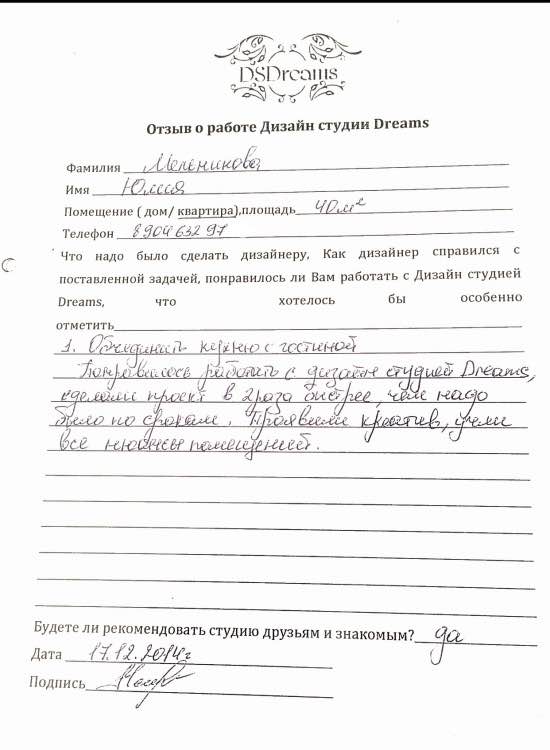 DSDreams
Отзыв о работе Дизайн студии Dreams
Фамилия Мельникова
Имя Юлия
Помещение ( дом/ квартира),площадь 40 м²
Телефон 8904 632 97
Что надо было сделать дизайнеру, Как дизайнер справился с
поставленной задачей, понравилось ли Вам работать с Дизайн студией
Dreams, что хотелось бы особенно
отметить
1. Объединить кухню с гостиной
Понравилось работать с дизайн студией Dreams,
сделали проект в 2 раза быстрее, чем надо
было по срокам. Проявили креатив, учли
все нюансы помещений.
Будете ли рекомендовать студию друзьям и знакомым? да
Дата 17.12.2014г
Подпись